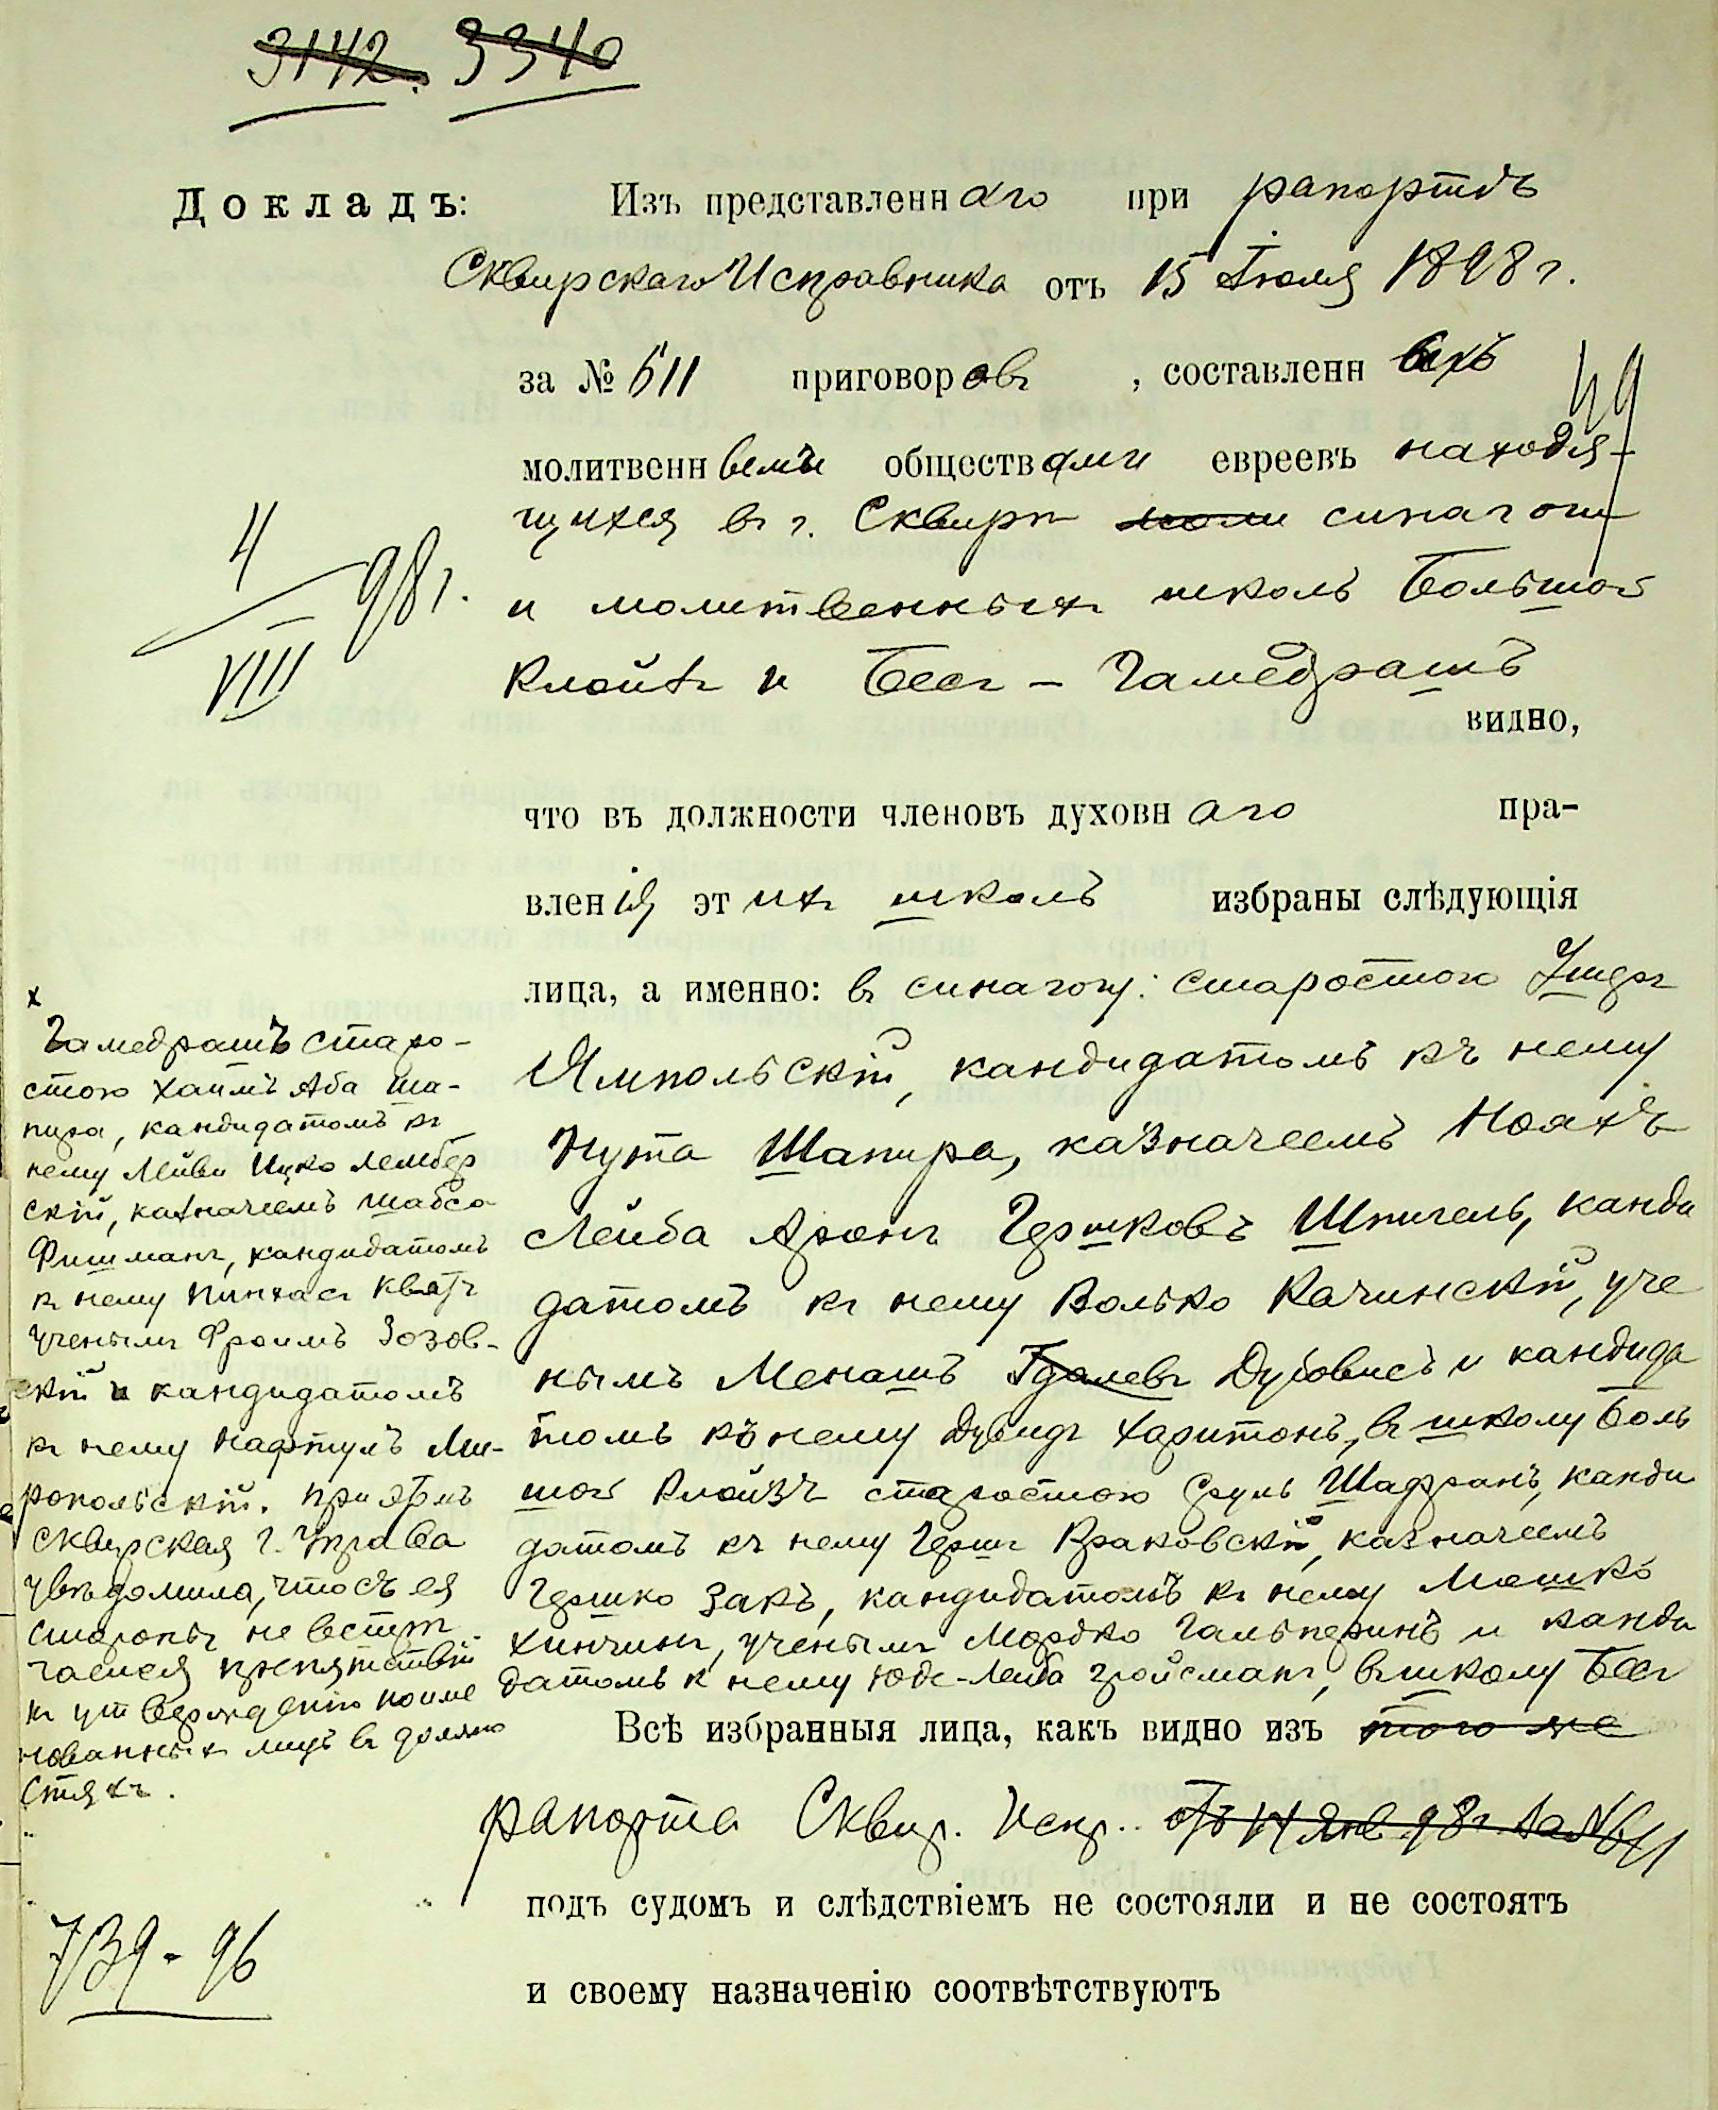 3142. 3340
Докладъ: Изъ представленнаго при рапортѣ
Сквирскаго Исправника отъ 15 Іюля 1898 г.
за № 611 приговоровъ, составленныхъ
49
молитвенными обществами евреевъ находя-
щихся въ г. Сквирѣ моли синагоги
и молитвенныхъ школъ Большой
Клойзъ и Бесъ-Гамедрашъ
видно,
4/VIII 98 г.
что въ должности членовъ духовнаго пра-
вленія этихъ школъ избраны слѣдующія
лица, а именно: въ синагогу: старостою
Ямпольскій, кандидатомъ къ нему
Нута Шапира, казначеемъ Ноахъ
Лейба Аронъ Гершковъ Шпигель, канди
датомъ къ нему Волько Качинскій, уче
нымъ Менашъ Гдалевъ Дубовисъ и кандида
томъ къ нему Дувидъ Харитонъ, въ школу Боль
шой Клойзъ старостою Сруль Шафранъ, канди
датомъ къ нему Гершъ Краковскій, казначеемъ
Гершко Закъ, кандидатомъ къ нему Мошко
Хинчинъ, ученымъ Мордко Гальперинъ и канди
датомъ к нему Юде-Лейба Гройсманъ, въ школу Бесъ
х
Гамедрашъ старо-
стою Хаимъ Аба Ша-
пира, кандидатомъ къ
нему Лейви Ицко Лембер
скій, казначеемъ Шабса
Фишманъ, кандидатомъ
къ нему Пинхасъ Квятъ
ученымъ Фроимъ Зозов-
скій и кандидатомъ
къ нему Нафтулъ Ми-
ропольскій. При этомъ
Сквирская г. Управа
увѣдомила, что съ ея
стороны не встрѣ
чается препятствій
къ утвержденію поиме
нованныхъ лицъ въ должно
стяхъ.
Всѣ избранныя лица, какъ видно изъ того же
рапорта Сквир. Испр. отъ 14 Янв 98 г. за № 611
подъ судомъ и слѣдствіемъ не состояли и не состоятъ
и своему назначенію соотвѣтствуютъ
739-96